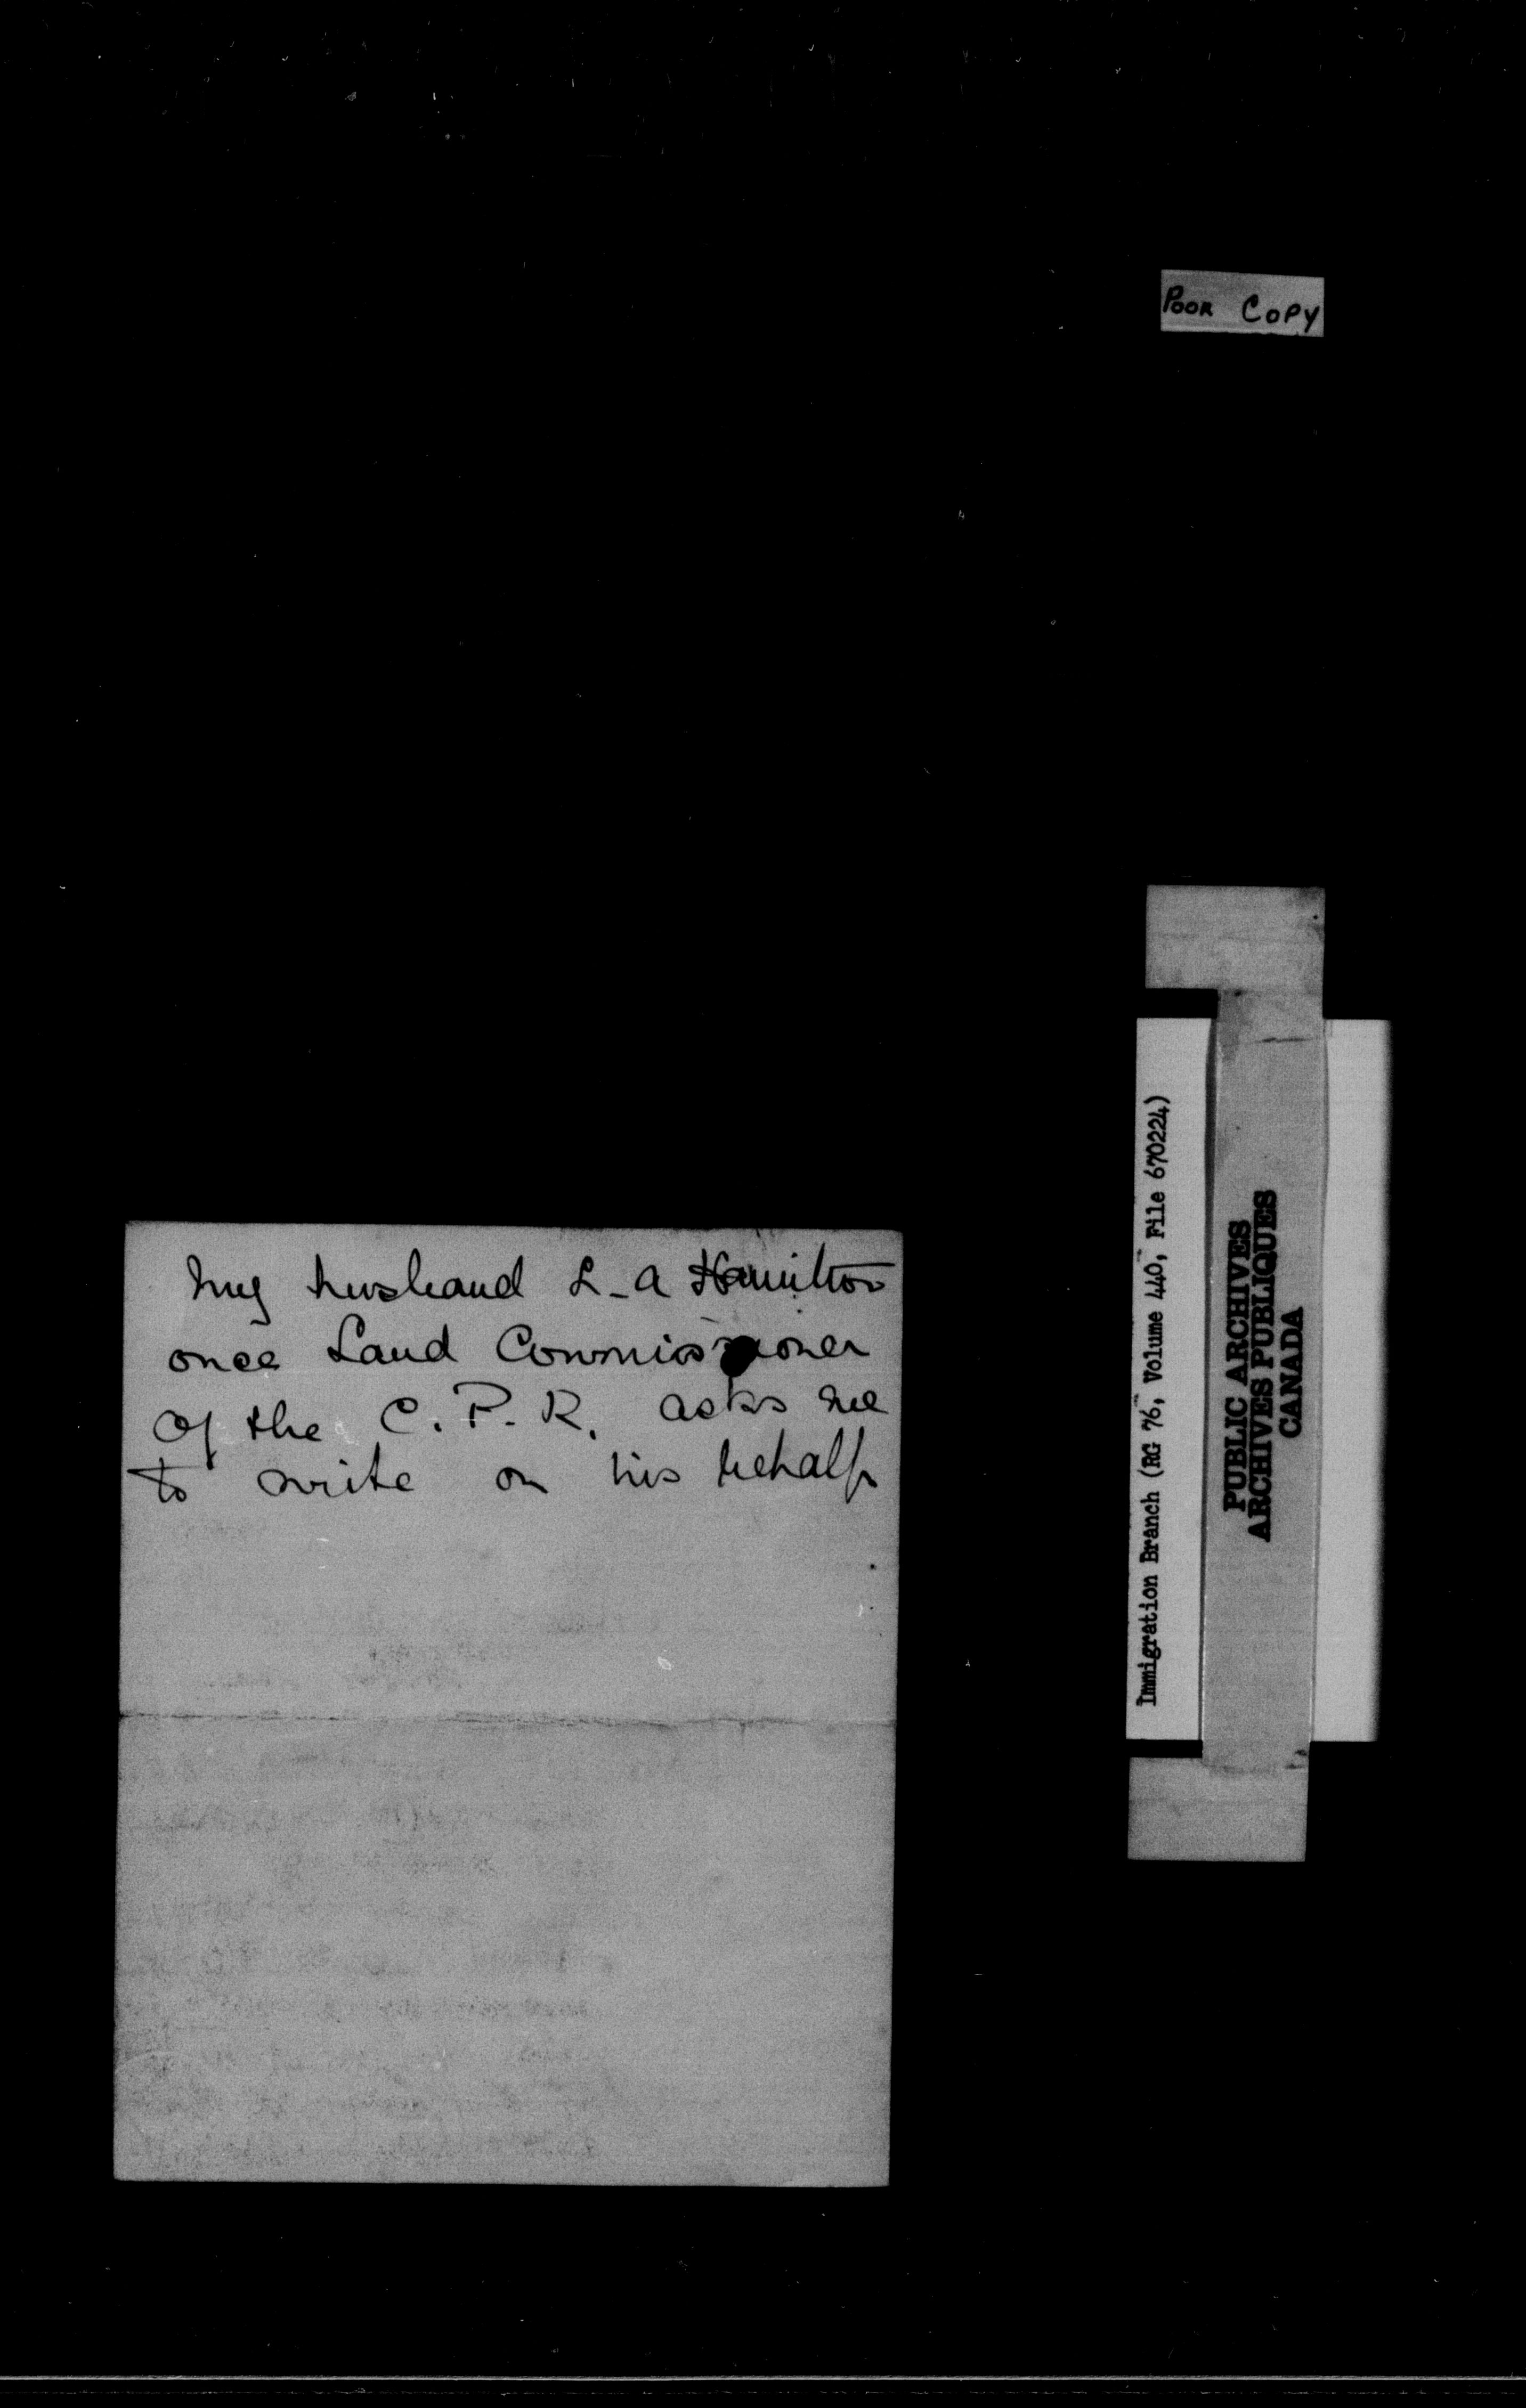 Poor Copy
My husband L-A Hamilton
once Land Commissioner
of the C.P.R. asks me
to write on his behalf
Immigration Branch (RG 76, Volume 440, File 670224)
PUBLIC ARCHIVES
ARCHIVES PUBLIQUES
CANADA